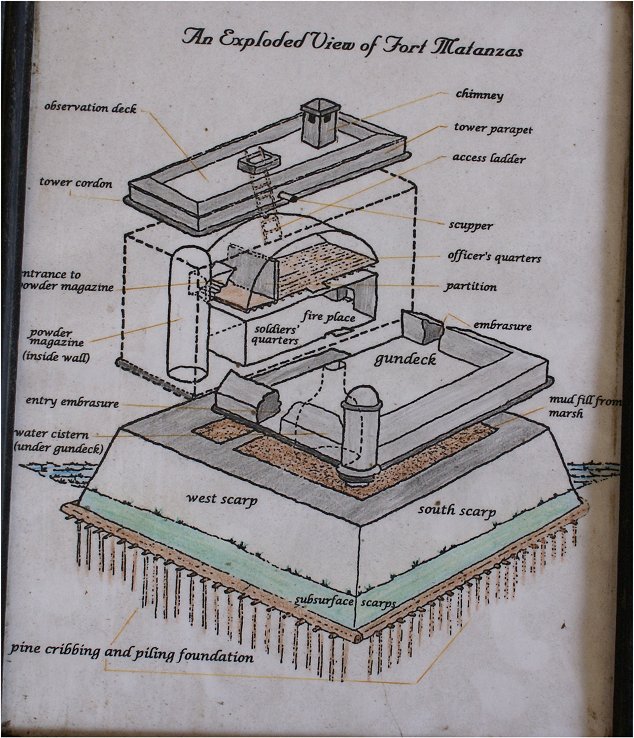 An Exploded View of Fort Matanzas
chimney
observation deck
tower parapet
access ladder
tower cordon
scupper
officer's quarters
entrance to
powder magazine
partition
fire place
soldiers'
quarters
embrasure
powder
magazine
(inside wall)
gundeck
entry embrasure
mud fill from
marsh
water cistern
(under gundeck)
west scarp
south scarp
subsurface scarps
pine cribbing and piling foundation